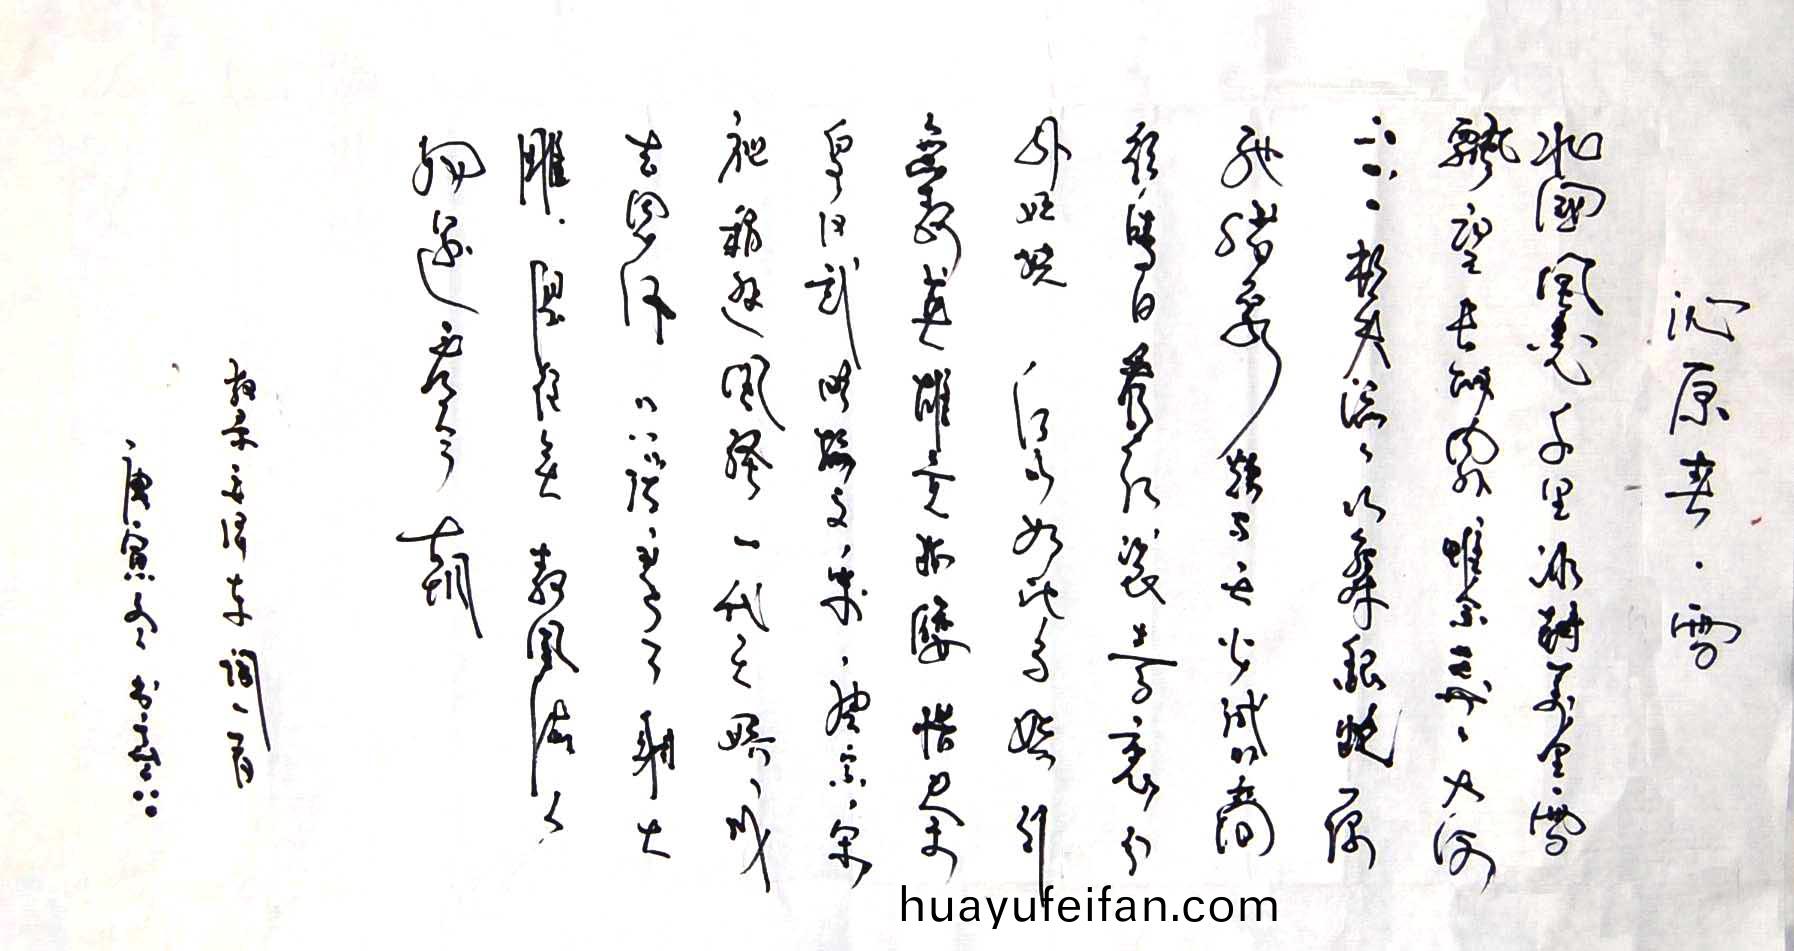 沁原春·雪
北國風光千里冰封萬里雪
飘望長城内外惟余莽莽大河
上下頓失滔滔山舞銀蛇原
驰蜡象欲与天公試比高
须晴日看红装素裹分
外妖娆 江山如此多娇引
無數英雄竞折腰惜秦
皇汉武略输文采唐宗宋
祖稍逊風騷一代天骄成
吉思汗 只识弯弓射大
雕 俱往矣 數風流人
物还看今朝
毛泽东詞一首
庚寅 书
huayufeifan.com